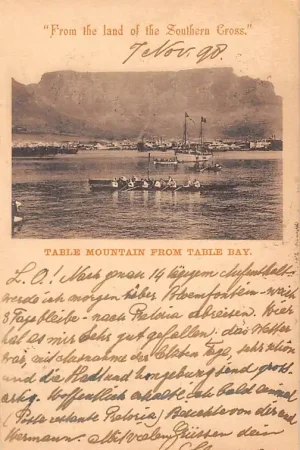 "From the land of the Southern Cross."
7 Nov. 98.
TABLE MOUNTAIN FROM TABLE BAY.
L. O.! Nach genau 14 tägigem Aufenthalt
werde ich morgen über Bloemfontein - wo ich
8 Tage bleibe - nach Pretoria abreisen. Hier
hat es mir sehr gut gefallen. Das Wetter
war, mit Ausnahme der letzten Tage, sehr schön
und die Stadt und Umgebung sind groß-
artig. Hoffentlich erhalte ich bald einmal
(Poste restante Pretoria) Nachricht von dir und
Hermann. Mit vielen Grüssen dein